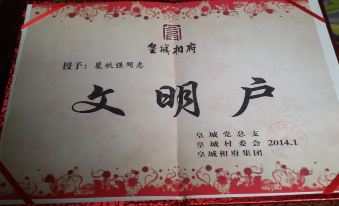 皇城相府
授予：裴狄强同志
文明户
皇城党总支
皇城村委会 2014.1
皇城相府集团